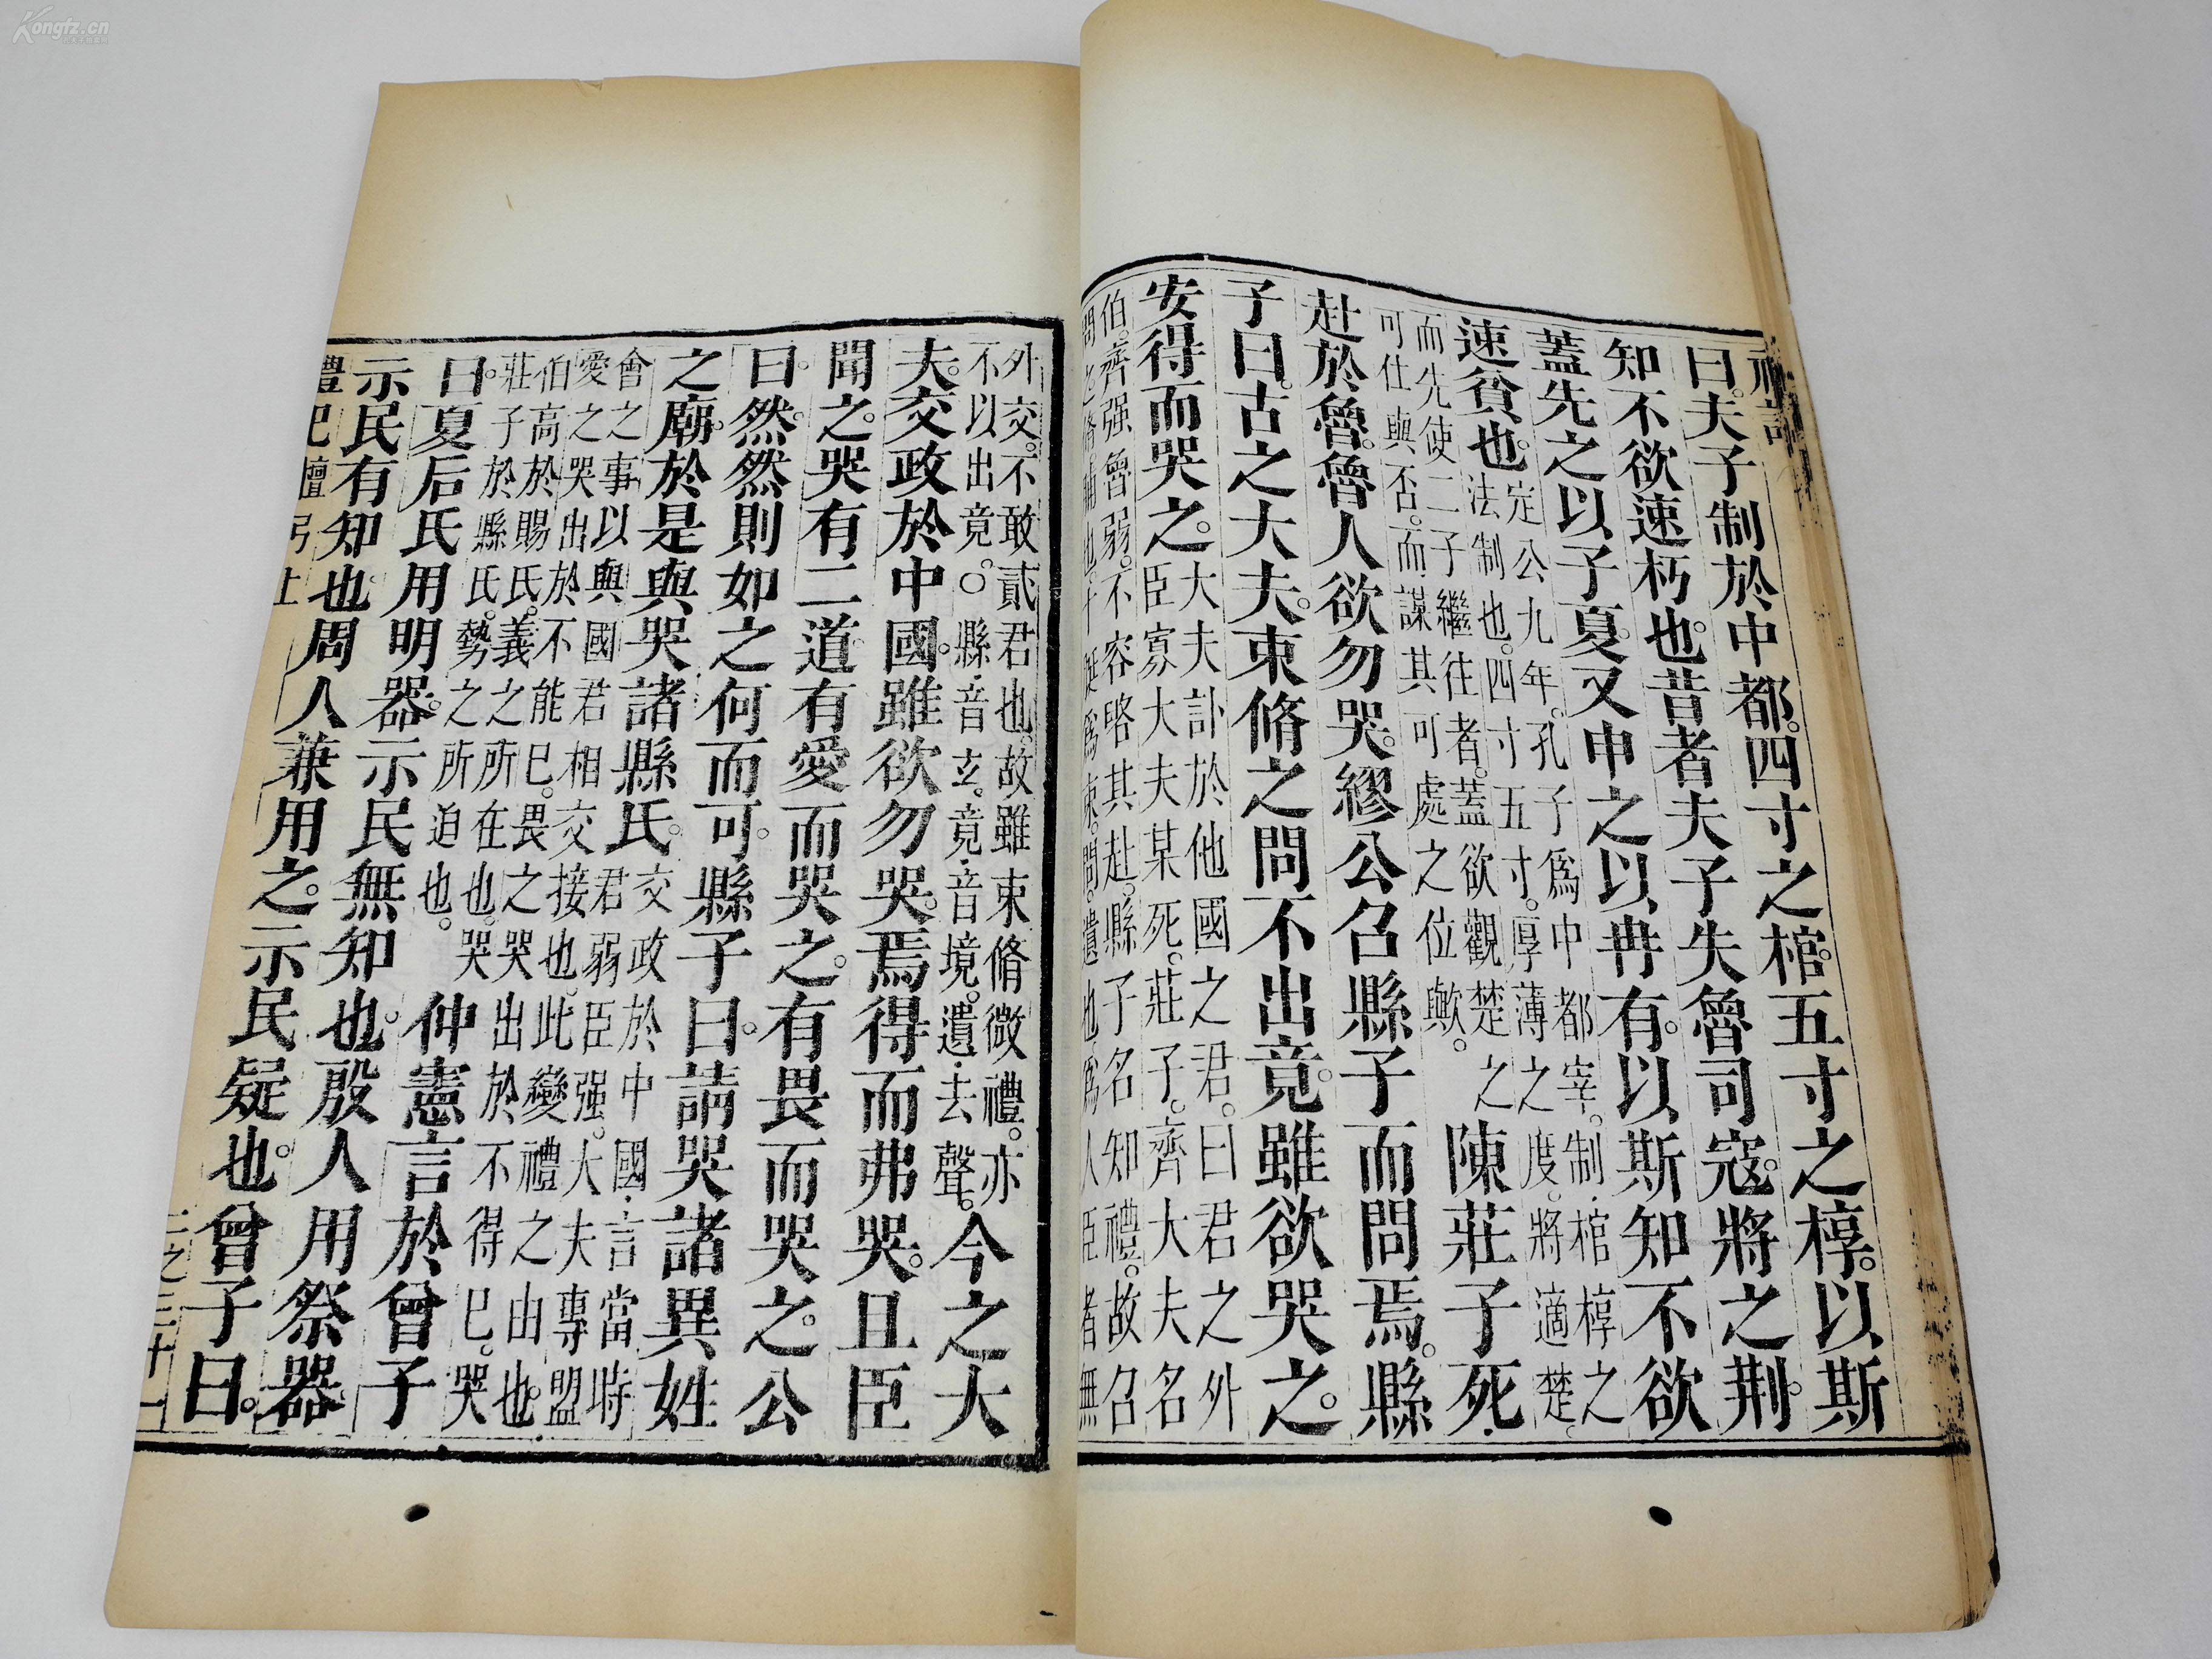 曰。夫子制於中都。四寸之棺。五寸之椁。以斯
知不欲速朽也。昔者夫子失魯司寇。將之荆。
蓋先之以子夏。又申之以冉有。以斯知不欲
速貧也。
定公九年。孔子爲中都宰。制棺椁之
法制也。四寸五寸。厚薄之度。將適楚。
而先使二子繼往者。蓋欲觀楚之
可仕與否。而謀其可處之位歟。
陳莊子死
赴於魯。魯人欲勿哭。繆公召縣子而問焉。縣
子曰。古之大夫。束脩之問不出竟。雖欲哭之。
安得而哭之。
大夫訃於他國之君。曰君之外
臣寡大夫某死。莊子。齊大夫名
伯。齊强魯弱。不容略其赴。縣子名知禮。故召
問之。脩脯也。十脡爲束。問。遺也。爲人臣者無
外交。不敢貳君也。故雖束脩微禮。亦
不以出竟。○縣音玄。竟音境。遺去聲。
今之大
夫。交政於中國。雖欲勿哭。焉得而弗哭。且臣
聞之。哭有二道。有愛而哭之。有畏而哭之。公
曰。然。然則如之何而可。縣子曰。請哭諸異姓
之廟。於是與哭諸縣氏。
交政於中國。言當時
君弱臣强。大夫專盟
會之事。以與國君相交接也。此變禮之由也。
愛之哭出於不能已。畏之哭出於不得已。哭
伯高於賜氏。義之所在也。哭
莊子於縣氏。勢之所迫也。
仲憲言於曾子
曰。夏后氏用明器。示民無知也。殷人用祭器
示民有知也。周人兼用之。示民疑也。曾子曰。
禮記檀弓上 二之三十一
Kongfz.cn